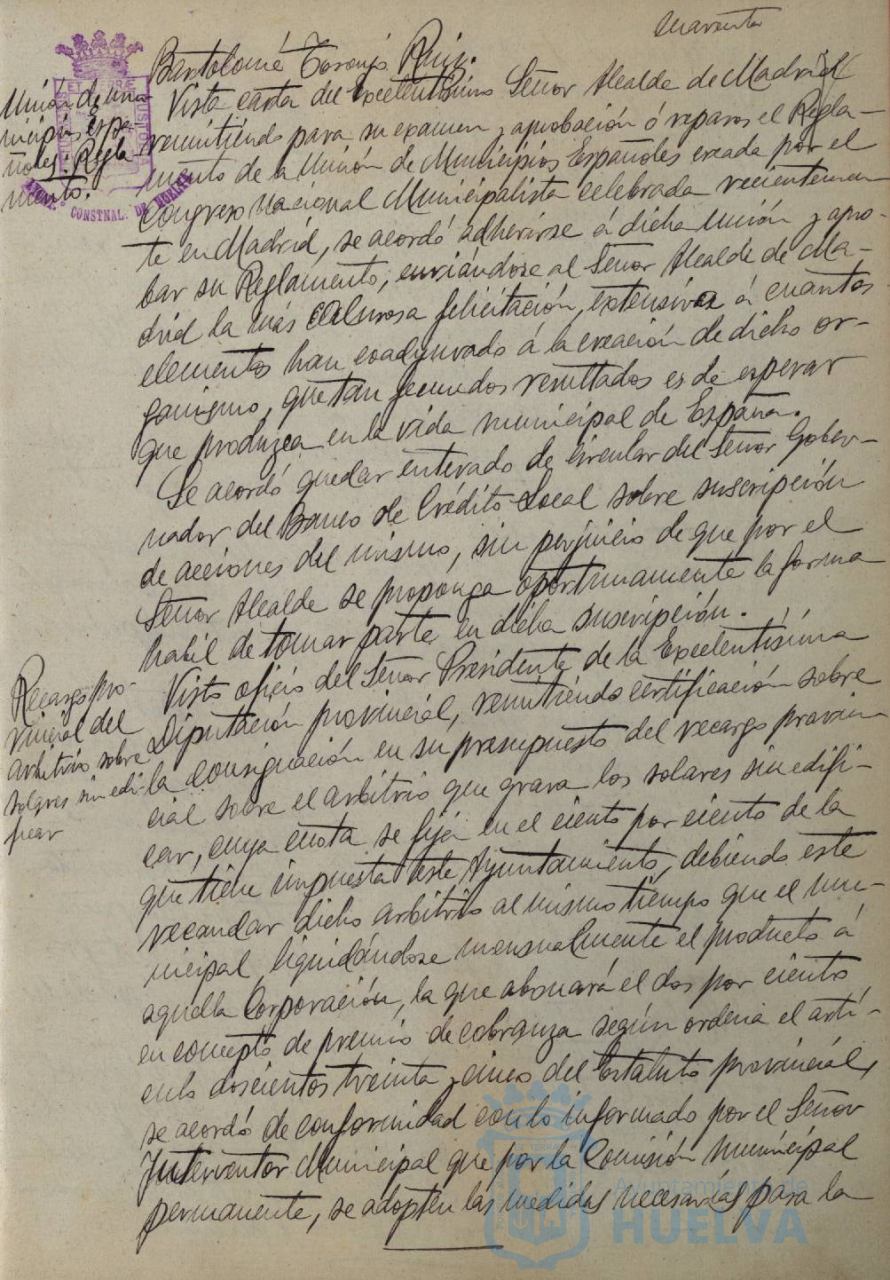 cuarenta
Bartolomé Toronjo Ruiz.
Vista carta del Excelentísimo Señor Alcalde de Madrid
remitiendo para su examen y aprobación ó reparos el Regla-
mento de la Unión de Municipios Españoles creada por el
Congreso Nacional Municipalista celebrado recientemen
te en Madrid, se acordó adherirse á dicha Unión y apro-
bar su Reglamento, enviándose al Señor Alcalde de Ma-
drid la más calurosa felicitación, extensiva á cuantos
elementos han coadyuvado á la creación de dicho or-
ganismo, que tan fecundos resultados es de esperar
que produzca en la vida municipal de España.
Se acordó quedar enterado de circular del Señor Gober-
nador del Banco de Crédito Local sobre suscripción
de acciones del mismo, sin perjuicio de que por el
Señor Alcalde se proponga oportunamente la forma
habil de tomar parte en dicha suscripción.
Visto oficio del Señor Presidente de la Excelentísima
Diputación provincial, remitiendo certificación sobre
la consignación en su presupuesto del recargo provin
cial sobre el arbitrio que grava los solares sin edifi-
car, cuya cuota se fija en el ciento por ciento de la
que tiene impuesta este Ayuntamiento, debiendo este
recaudar dicho arbitrio al mismo tiempo que el mu-
nicipal, liquidándose mensualmente el producto á
aquella Corporación, la que abonará el dos por ciento
en concepto de premio de cobranza según ordena el artí-
culo doscientos treinta y cinco del Estatuto provincial,
se acordó de conformidad con lo informado por el Señor
Interventor Municipal que por la Comisión municipal
permanente, se adopten las medidas necesarias para la
Unión de mu
nicipios espa
ñoles. Regla-
mento.
CONSTNAL. DE HUELVA
Recargo pro-
vincial del
arbitrio sobre
solares sin edi-
ficar
Ayuntamiento de
HUELVA